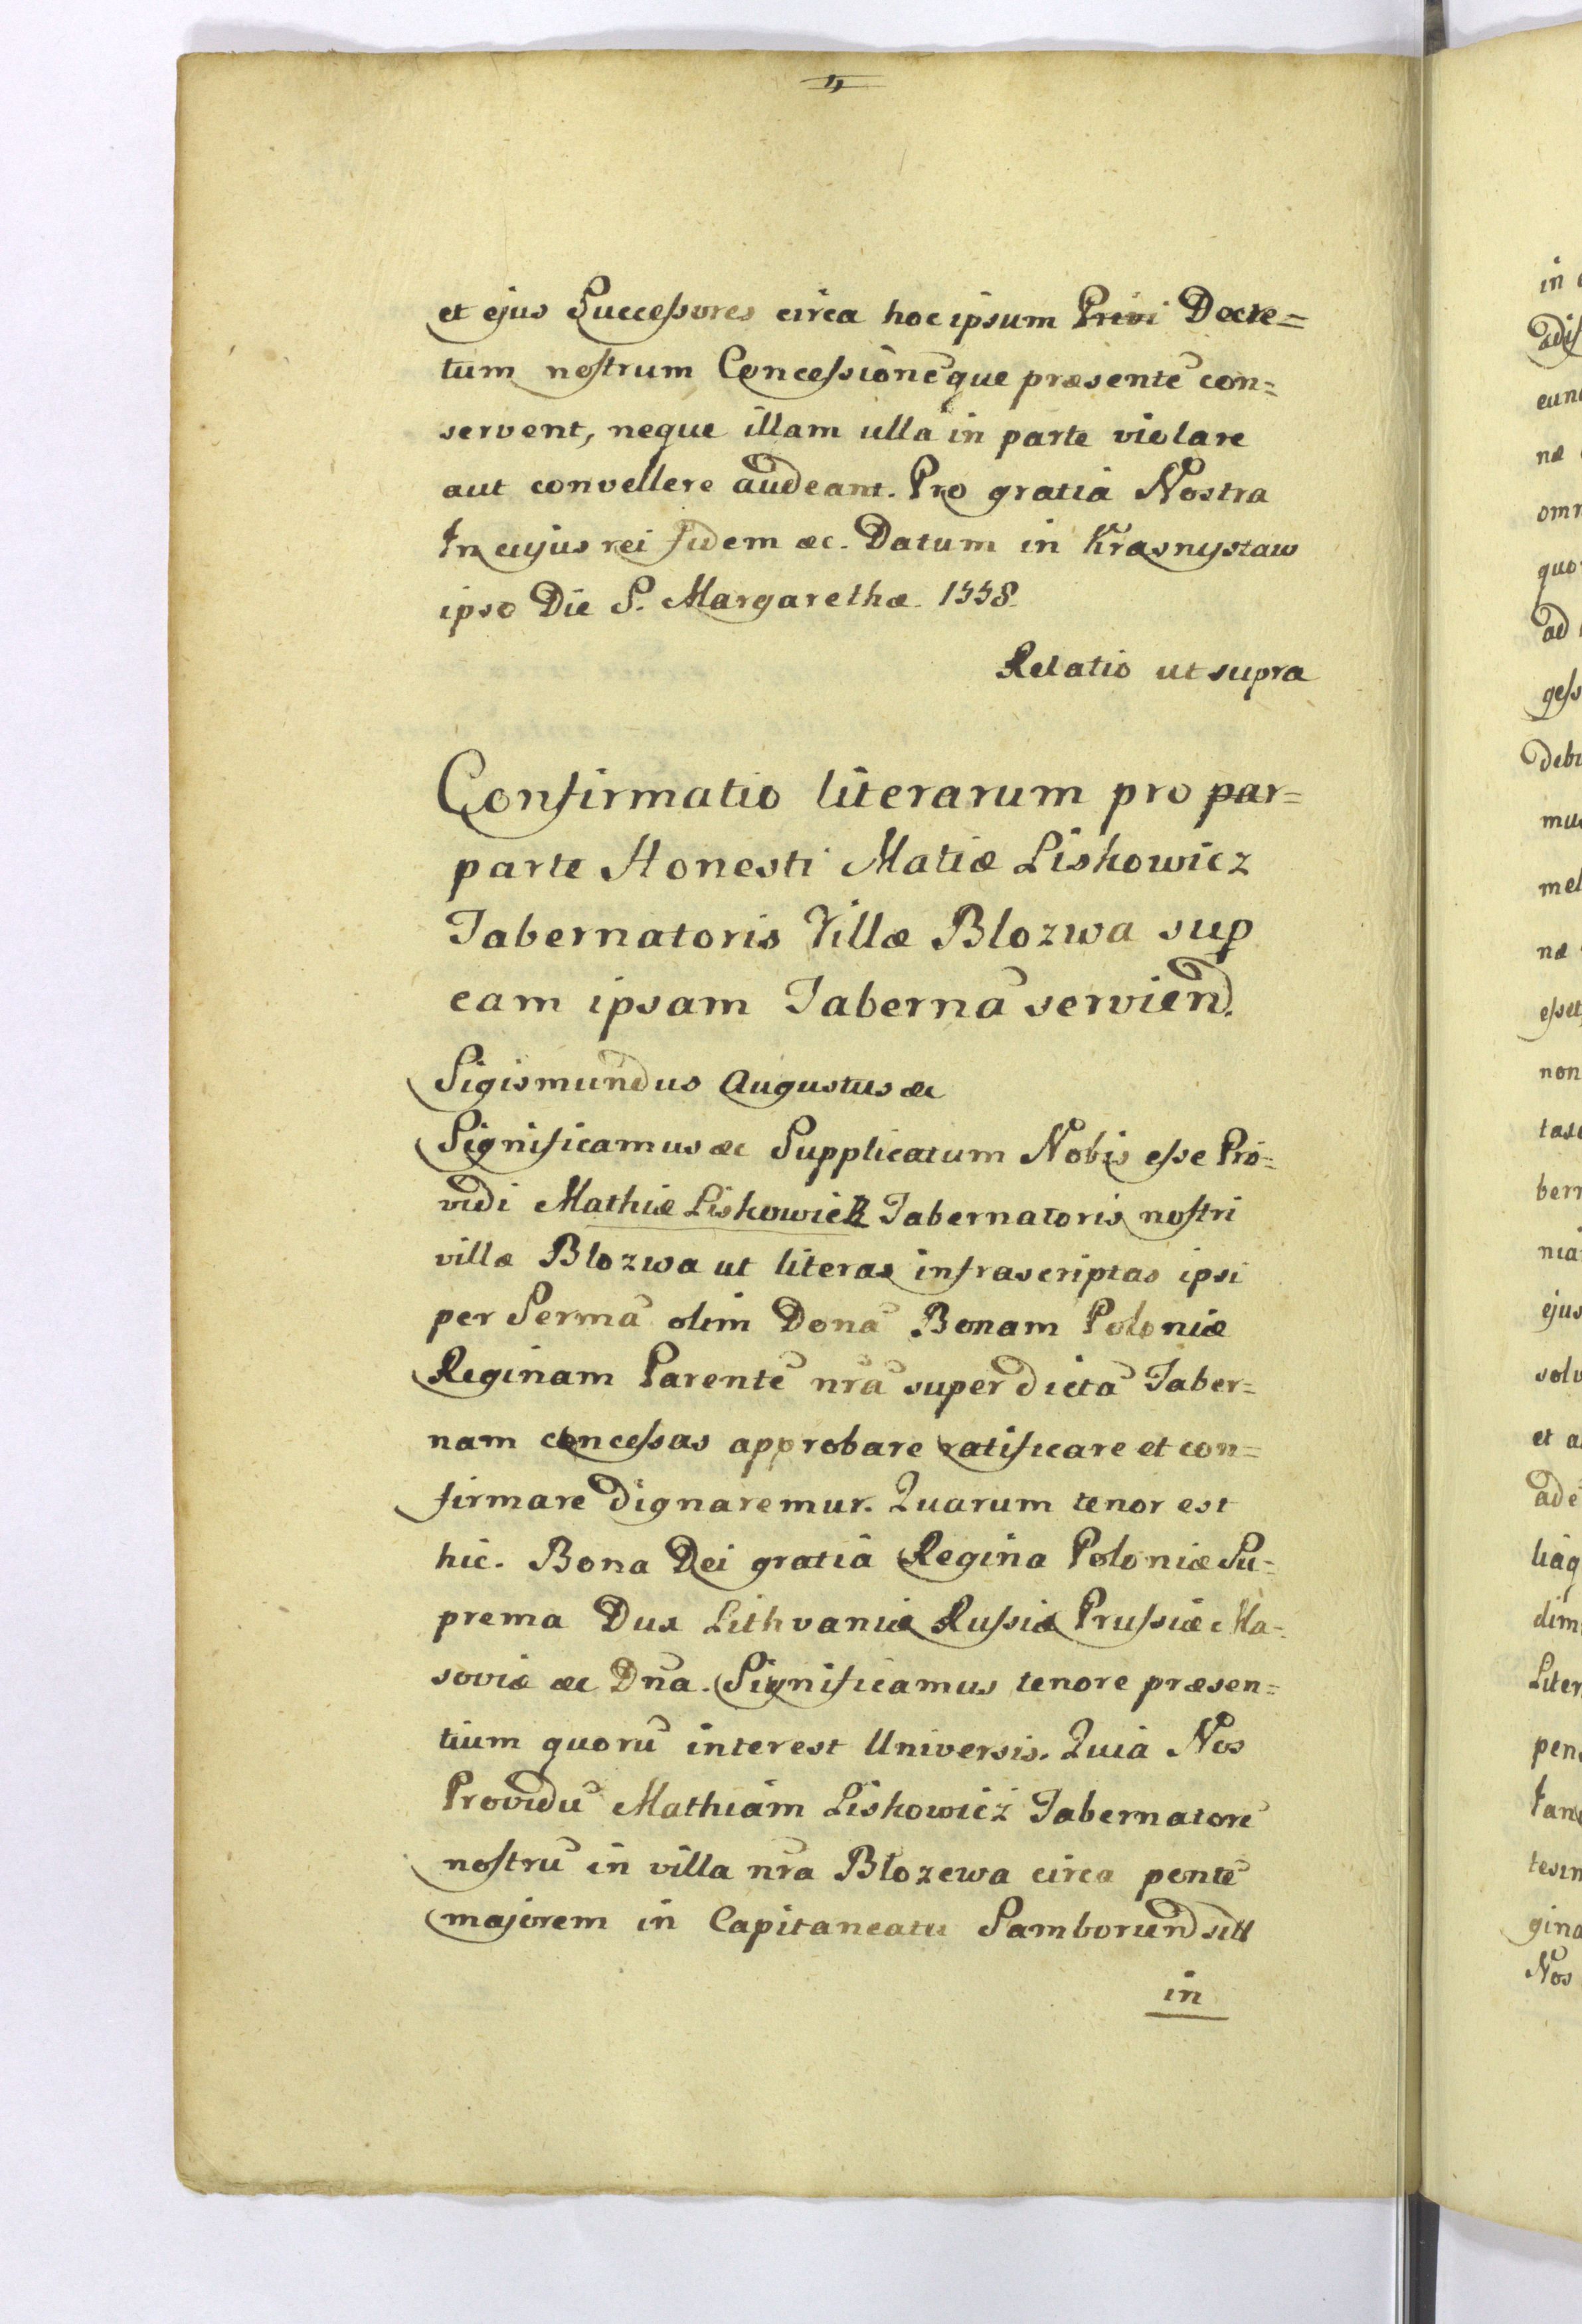 et ejus Successores circa hoc ipsum Privi Decre=
tum nostrum Concessionēque præsentē con=
servent, neque illam ulla in parte violare
aut convellere audeant. Pro gratia Nostra
In cujus rei fidem &c. Datum in Krasnystaw
ipso Die S. Margarethæ 1558.
Relatio ut supra
Confirmatio literarum pro par=
parte Honesti Matiæ Liskowicz
Tabernatoris Villæ Blozwa sup
eam ipsam Tabernā serviend.
Sigismundus Augustus &c
Significamus &c Supplicatum Nobis esse Pro=
vidi Mathiæ Liskowicz Tabernatoris nostri
villæ Blozwa ut literas infrascriptas ipsi
per Sermā olim Donā Bonam Poloniæ
Reginam Parentē nrā super dictā Taber=
nam concessas approbare ratificare et con=
firmare dignaremur. Quarum tenor est
hic. Bona Dei gratia Regina Poloniæ Su=
prema Dux Lithvaniæ Russiæ Prussiæ Ma=
soviæ &c Dna. Significamus tenore præsen=
tium quorū interest Universis. Quia Nos
Providū Mathiam Liskowicz Tabernatorē
nostrū in villa nra Błozewa circa pontē
majorem in Capitaneatu Samboriend
in
in
eun
næ
omn
quo
ad
gess
debi
mel
næ
esset
non
bern
nia
ejus
solv
et a
dim
Liter
pen
gina
Nos